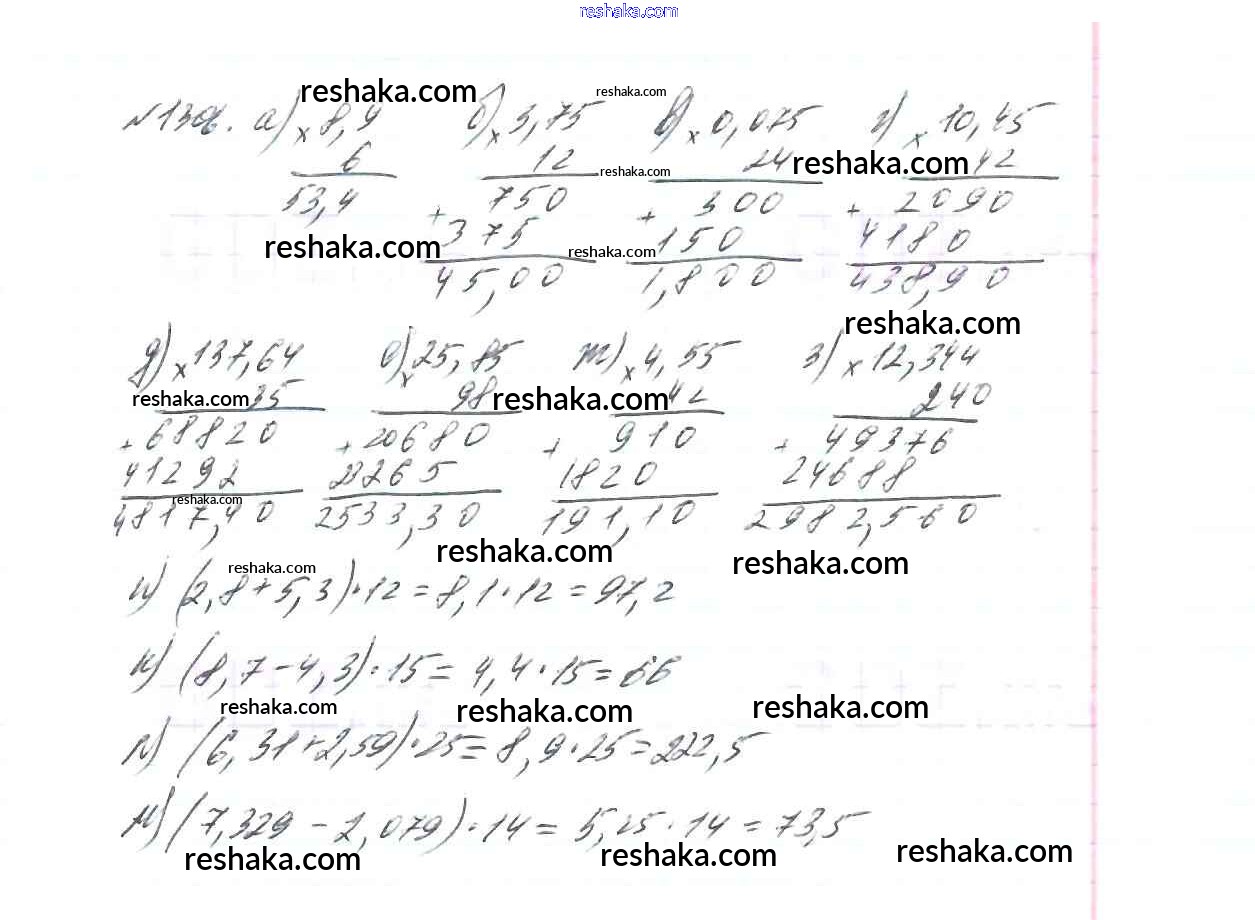 reshaka.com
reshaka.com reshaka.com
№1306. а) × 8,9 б) × 3,75 в) × 0,075 г) × 10,45
6 12 24 reshaka.com 42
reshaka.com
53,4 + 750 + 300 + 2090
reshaka.com 375 reshaka.com 150 4180
45,00 1,800 438,90
reshaka.com
д) × 137,64 е) × 25,85 ж) × 4,55 з) × 12,344
reshaka.com 35 98 reshaka.com 42 240
+ 68820 + 20680 + 910 + 49376
41292 23265 1820 24688
reshaka.com
4817,40 2533,30 191,10 2982,560
reshaka.com reshaka.com
reshaka.com
и) (2,8+5,3)·12=8,1·12=97,2
к) (8,7-4,3)·15=4,4·15=66
reshaka.com reshaka.com reshaka.com
л) (6,31+2,59)·25=8,9·25=222,5
м) (7,329-2,079)·14=5,25·14=73,5
reshaka.com reshaka.com reshaka.com